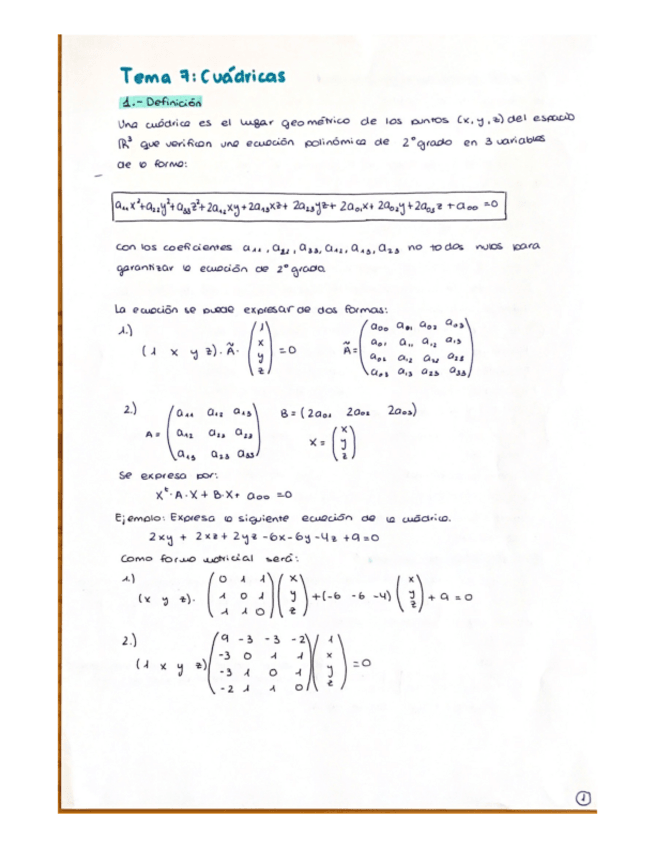 Tema 7: Cuádricas
1.- Definición
Una cuádrica es el lugar geométrico de los puntos (x, y, z) del espacio
ℝ³ que verifican una ecuación polinómica de 2º grado en 3 variables
de la forma:
a₁₁x²+a₂₂y²+a₃₃z²+2a₁₂xy+2a₁₃xz+2a₂₃yz+2a₀₁x+2a₀₂y+2a₀₃z+a₀₀=0
con los coeficientes a₁₁, a₂₂, a₃₃, a₁₂, a₁₃, a₂₃ no todos nulos para
garantizar la ecuación de 2º grado.
La ecuación se puede expresar de dos formas:
1.)
(1 x y z)·Ã·(1 x y z) = 0 Ã = (a₀₀ a₀₁ a₀₂ a₀₃
a₀₁ a₁₁ a₁₂ a₁₃
a₀₂ a₁₂ a₂₂ a₂₃
a₀₃ a₁₃ a₂₃ a₃₃)
2.)
A = (a₁₁ a₁₂ a₁₃ B = (2a₀₁ 2a₀₂ 2a₀₃)
a₁₂ a₂₂ a₂₃
a₁₃ a₂₃ a₃₃) X = (x y z)
Se expresa por:
Xᵗ·A·X + B·X + a₀₀ = 0
Ejemplo: Expresa la siguiente ecuación de la cuádrica.
2xy + 2xz + 2yz -6x -6y -4z +9 = 0
Como forma matricial será:
1)
(x y z)· (0 1 1
1 0 1
1 1 0) (x y z) + (-6 -6 -4) (x y z) + 9 = 0
2.)
(1 x y z) (9 -3 -3 -2
-3 0 1 1
-3 1 0 1
-2 1 1 0) (1 x y z) = 0
1